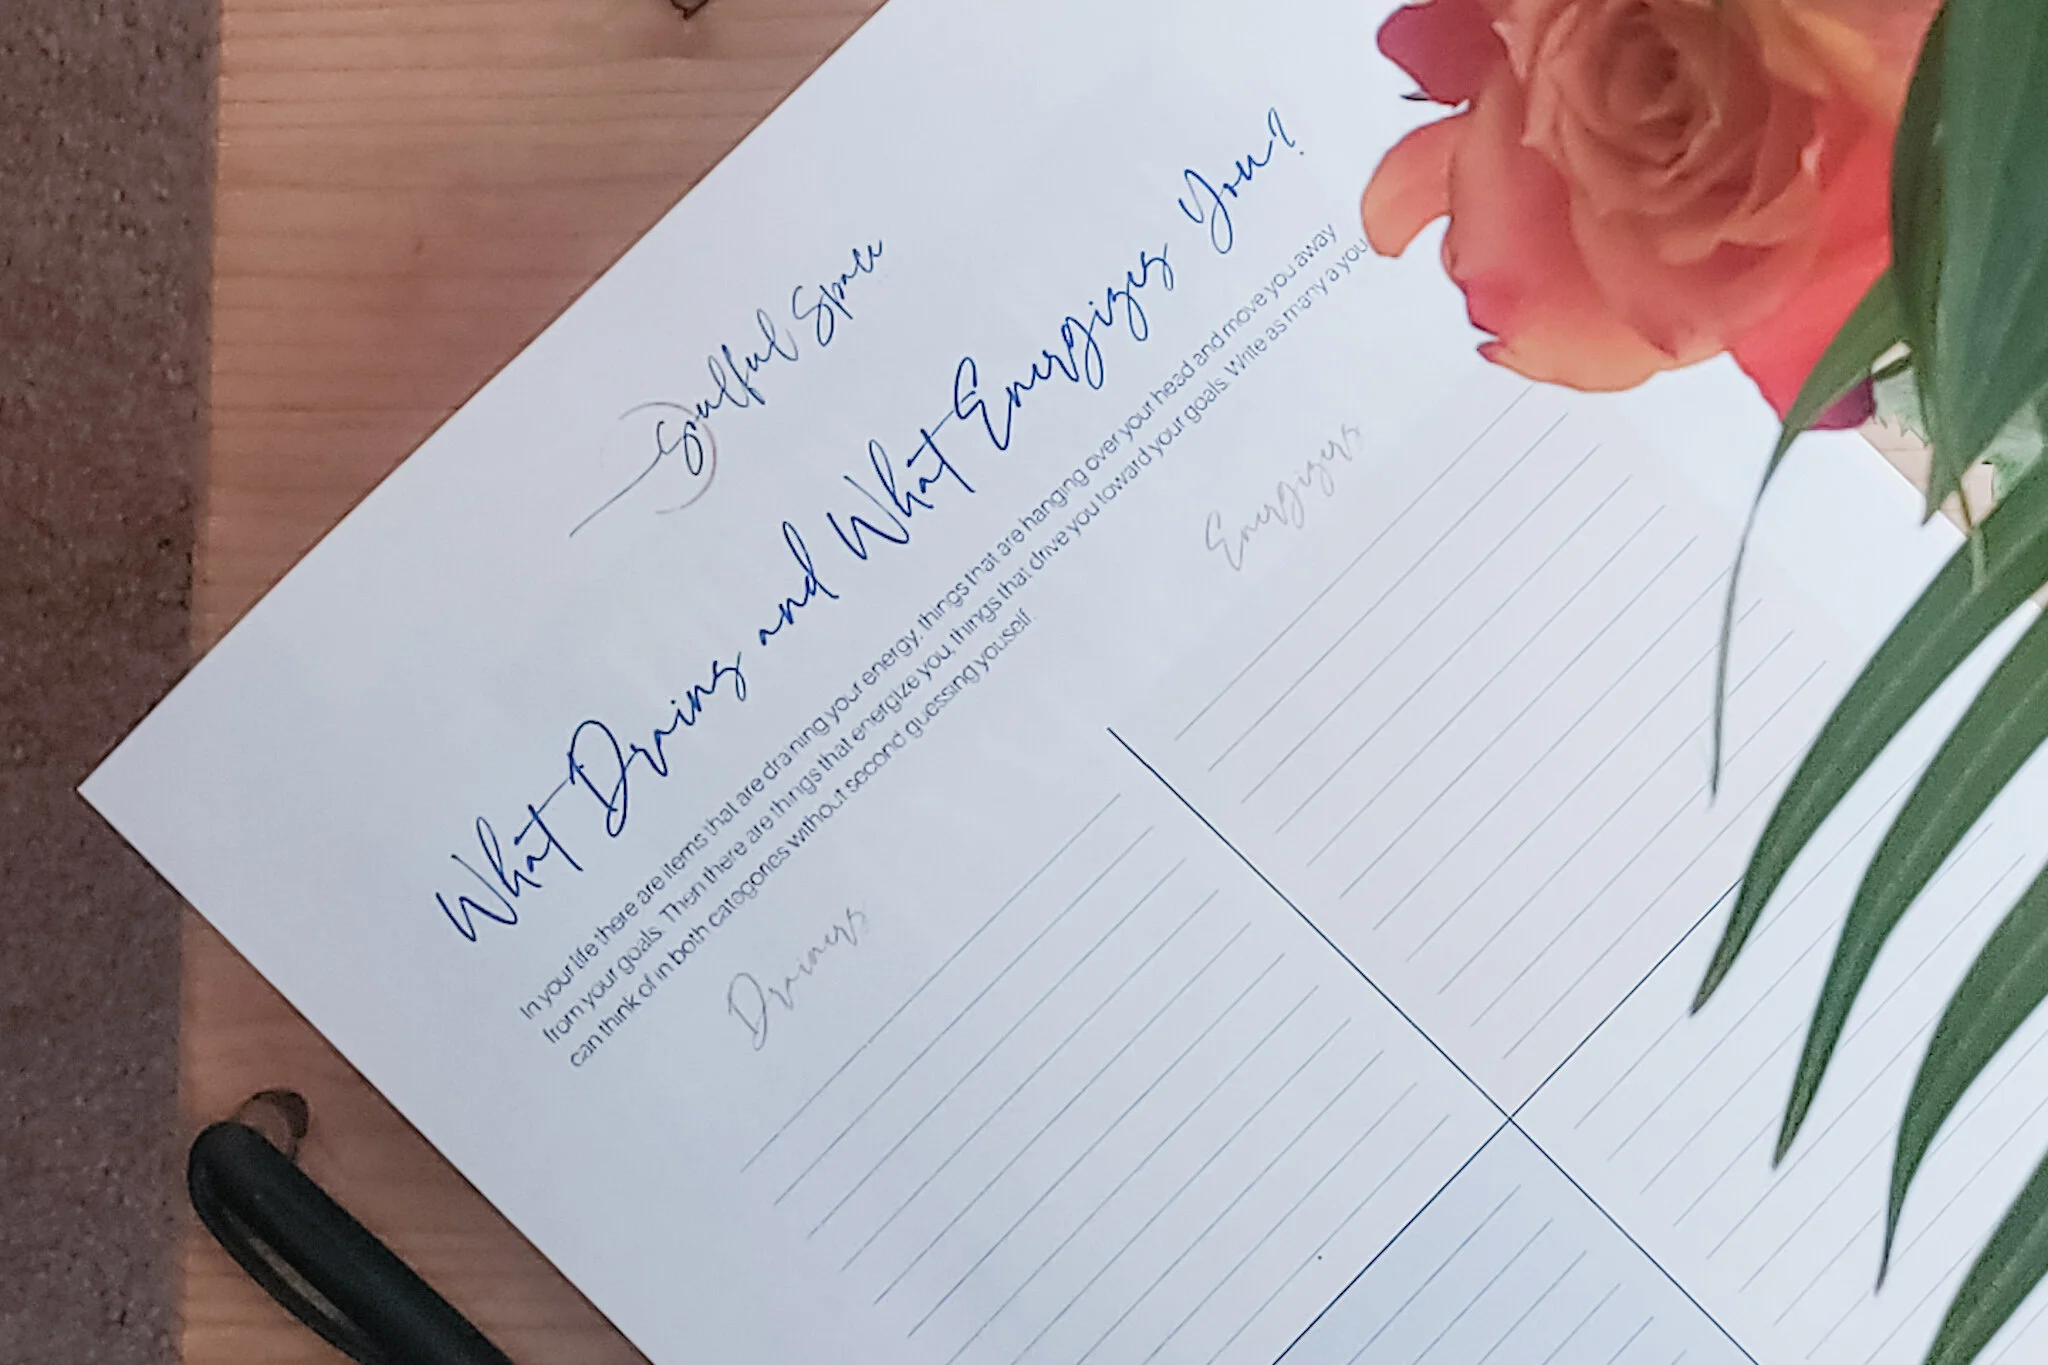 Soulful Space
What Drains and What Energizes You?
In your life there are items that are draining your energy, things that are hanging over your head and move you away
from your goals. Then there are things that energize you, things that drive you toward your goals. Write as many a you
can think of in both catogories without second guessing youself.
Drainers
Energizers